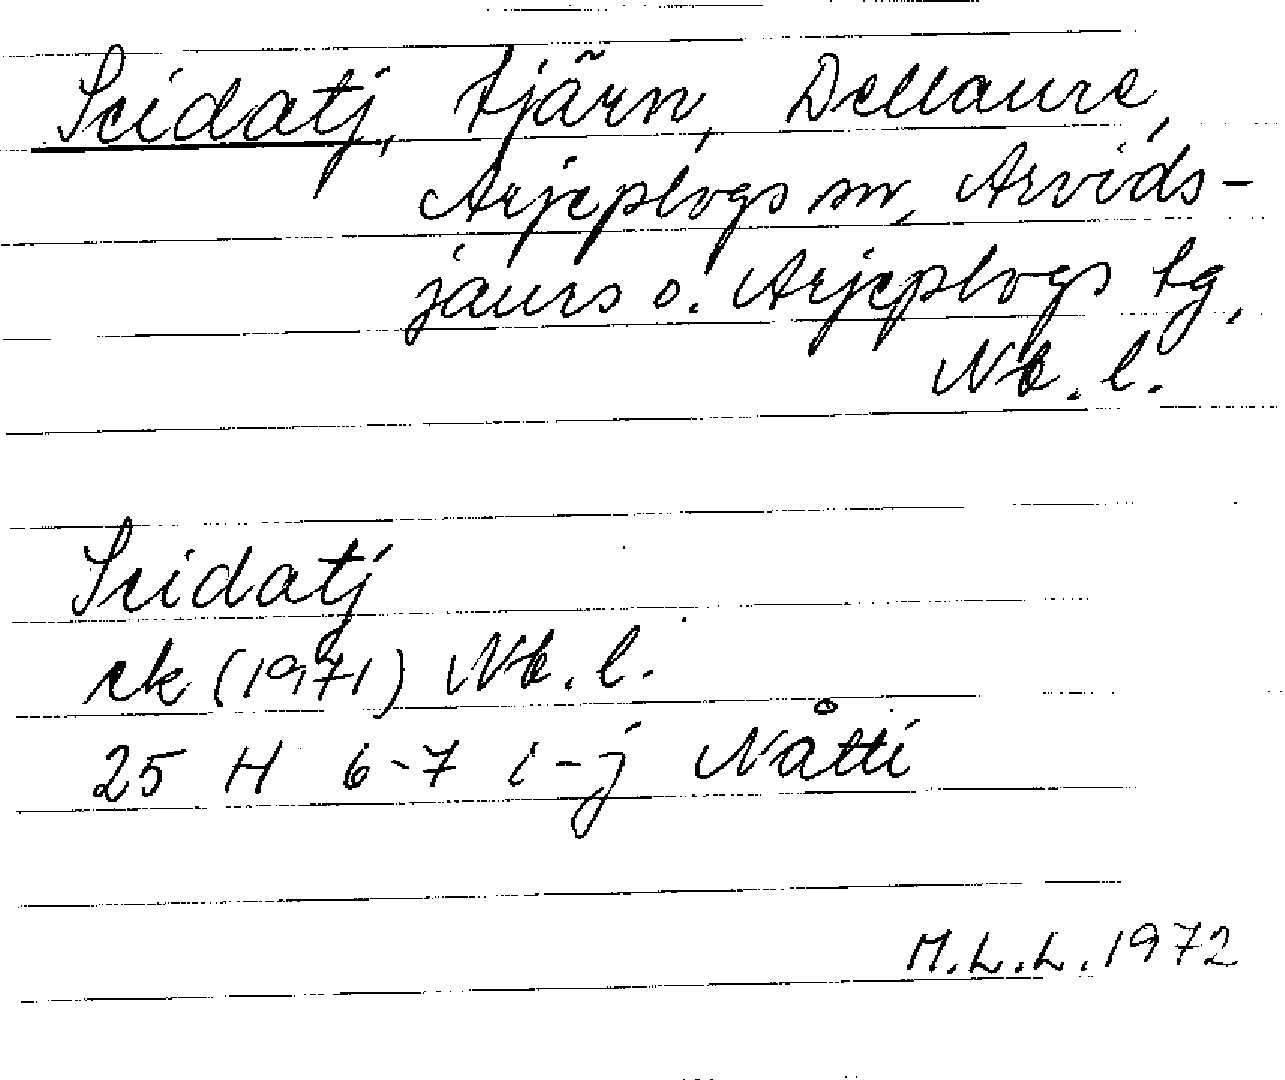 Seidatj, tjärn, Dellaure,
Arjeplogs sn, Arvids-
jaurs o. Arjeplogs tg,
Nb. l.
Seidatj
ek (1971) Nb. l.
25 H 6-7 i-j Nåtti
M.L.L. 1972